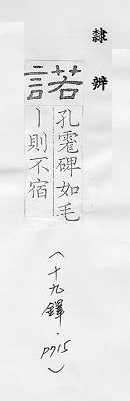 隸辨
諾
孔宙碑如毛
丨則不宿
(十九鐸·
P715)